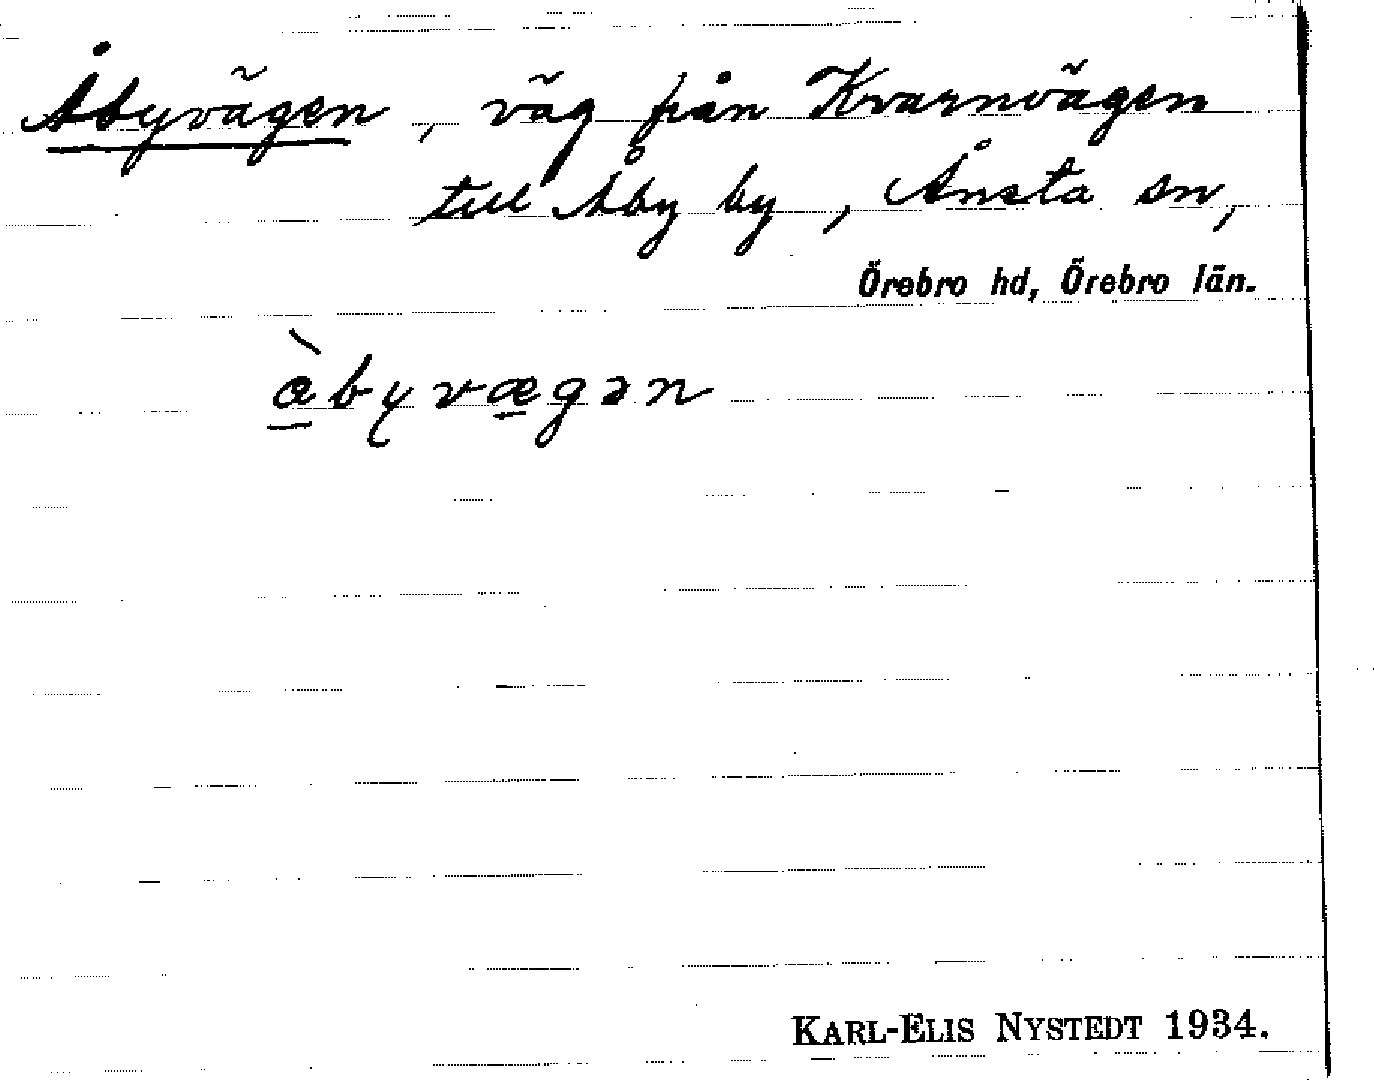 Åbyvägen, väg från Kvarnvägen
till Åby by, Ånsta sn,
Örebro hd, Örebro län.
àbyvægən
KARL-ELIS NYSTEDT 1934.